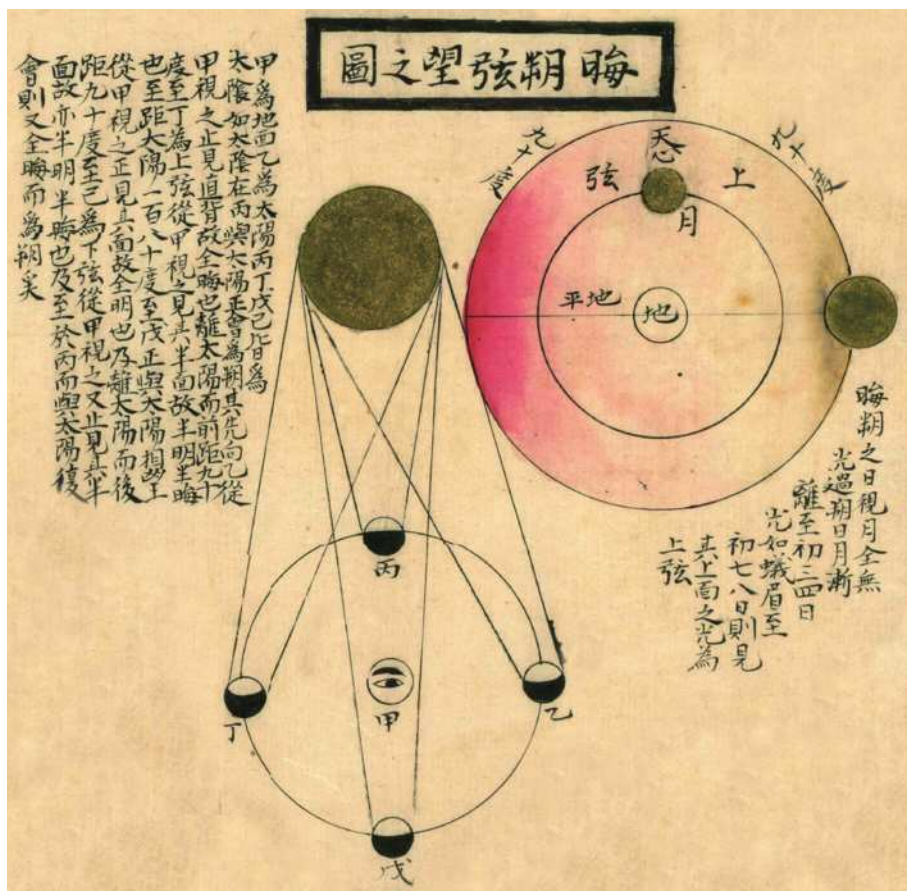 晦朔弦望之圖
九十度
九十度
上弦
月
地平
地
晦朔之日視月全無
光過朔日月漸
離至初三四日
光如蟻眉至
初七八日則見
其上面之光為
上弦
甲爲地面乙爲太陽丙丁戊己皆爲
太陰如太陰在丙與太陽正會爲朔其先向乙從
甲視之止見直背故全晦也離太陽而前距九十
度至丁為上弦從甲視之見其半面故半明半晦
也至距太陽一百八十度至戊正與太陽相望
從甲視之正見其面故全明也及離太陽而後
距九十度至己爲下弦從甲視之又止見其半
面故亦半明半晦也及至於丙而與太陽復
會則又全晦而爲朔矣
丙
甲
丁
乙
戊